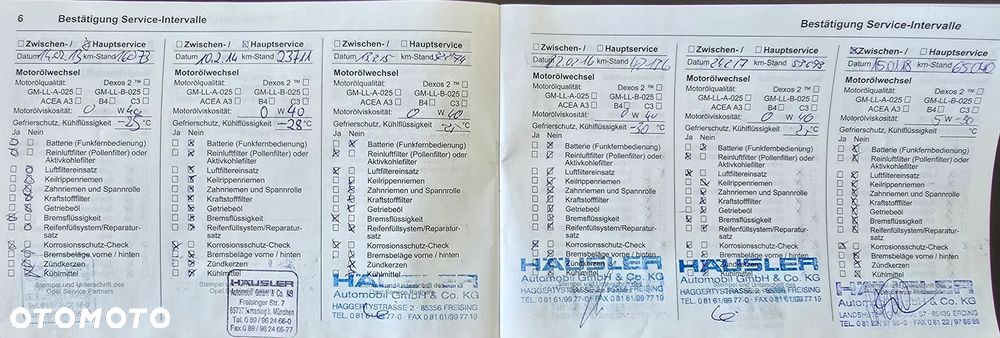 6 Bestätigung Service-Intervalle
Zwischen-/ Hauptservice
Datum 14.02.13 km-Stand 16073
Motorölwechsel
Motorölqualität: Dexos 2 ™
GM-LL-A-025 GM-LL-B-025
ACEA A3 B4 C3
Motorölviskosität: 0 W 40
Gefrierschutz, Kühlflüssigkeit -25 °C
Ja Nein
Batterie (Funkfernbedienung)
Reinluftfilter (Pollenfilter) oder
Aktivkohlefilter
Luftfiltereinsatz
Keilrippenriemen
Zahnriemen und Spannrolle
Kraftstofffilter
Getriebeöl
Bremsflüssigkeit
Reifenfüllsystem/Reparatur-
satz
Korrosionsschutz-Check
Bremsbeläge vorne / hinten
Zündkerzen
Kühlmittel
Stempel und Unterschrift des
Opel Service Partners
Zwischen-/ Hauptservice
Datum 10.2.14 km-Stand 23711
Motorölwechsel
Motorölqualität: Dexos 2 ™
GM-LL-A-025 GM-LL-B-025
ACEA A3 B4 C3
Motorölviskosität: 0 W 40
Gefrierschutz, Kühlflüssigkeit -28 °C
Ja Nein
Batterie (Funkfernbedienung)
Reinluftfilter (Pollenfilter) oder
Aktivkohlefilter
Luftfiltereinsatz
Keilrippenriemen
Zahnriemen und Spannrolle
Kraftstofffilter
Getriebeöl
Bremsflüssigkeit
Reifenfüllsystem/Reparatur-
satz
Korrosionsschutz-Check
Bremsbeläge vorne / hinten
Zündkerzen
Kühlmittel
HÄUSLER
Automobil GmbH & Co. KG
Freisinger Str. 7
Tel. 0 89 / 96 24 66-0
Fax 0 89 / 96 24 66-77
Zwischen-/ Hauptservice
Datum km-Stand
Motorölwechsel
Motorölqualität: Dexos 2 ™
GM-LL-A-025 GM-LL-B-025
ACEA A3 B4 C3
Motorölviskosität: 0 W 40
Gefrierschutz, Kühlflüssigkeit °C
Ja Nein
Batterie (Funkfernbedienung)
Reinluftfilter (Pollenfilter) oder
Aktivkohlefilter
Luftfiltereinsatz
Keilrippenriemen
Zahnriemen und Spannrolle
Kraftstofffilter
Getriebeöl
Bremsflüssigkeit
Reifenfüllsystem/Reparatur-
satz
Korrosionsschutz-Check
Bremsbeläge vorne / hinten
Zündkerzen
Kühlmittel
HÄUSLER
Automobil GmbH & Co. KG
HAGGERTYSTRASSE 2 - 85356 FREISING
TEL. 0 81 61/99 77-0 · FAX 0 81 61/99 77 19
Bestätigung Service-Intervalle
Zwischen-/ Hauptservice
Datum km-Stand
Motorölwechsel
Motorölqualität: Dexos 2 ™
GM-LL-A-025 GM-LL-B-025
ACEA A3 B4 C3
Motorölviskosität: 0 W 40
Gefrierschutz, Kühlflüssigkeit -30 °C
Ja Nein
Batterie (Funkfernbedienung)
Reinluftfilter (Pollenfilter) oder
Aktivkohlefilter
Luftfiltereinsatz
Keilrippenriemen
Zahnriemen und Spannrolle
Kraftstofffilter
Getriebeöl
Bremsflüssigkeit
Reifenfüllsystem/Reparatur-
satz
Korrosionsschutz-Check
Bremsbeläge vorne / hinten
Zündkerzen
Kühlmittel
HÄUSLER
Automobil GmbH & Co. KG
HAGGERTYSTRASSE 2 - 85356 FREISING
TEL. 0 81 61/99 77-0 · FAX 0 81 61/99 77 19
Zwischen-/ Hauptservice
Datum km-Stand
Motorölwechsel
Motorölqualität: Dexos 2 ™
GM-LL-A-025 GM-LL-B-025
ACEA A3 B4 C3
Motorölviskosität: 0 W 40
Gefrierschutz, Kühlflüssigkeit °C
Ja Nein
Batterie (Funkfernbedienung)
Reinluftfilter (Pollenfilter) oder
Aktivkohlefilter
Luftfiltereinsatz
Keilrippenriemen
Zahnriemen und Spannrolle
Kraftstofffilter
Getriebeöl
Bremsflüssigkeit
Reifenfüllsystem/Reparatur-
satz
Korrosionsschutz-Check
Bremsbeläge vorne / hinten
Zündkerzen
Kühlmittel
HÄUSLER
Automobil GmbH & Co. KG
HAGGERTYSTRASSE 2 - 85356 FREISING
TEL. 0 81 61/99 77-0 · FAX 0 81 61/99 77 19
Zwischen-/ Hauptservice
Datum 15.01.18 km-Stand 65040
Motorölwechsel
Motorölqualität: Dexos 2 ™
GM-LL-A-025 GM-LL-B-025
ACEA A3 B4 C3
Motorölviskosität: 5 W-30
Gefrierschutz, Kühlflüssigkeit °C
Ja Nein
Batterie (Funkfernbedienung)
Reinluftfilter (Pollenfilter) oder
Aktivkohlefilter
Luftfiltereinsatz
Keilrippenriemen
Zahnriemen und Spannrolle
Kraftstofffilter
Getriebeöl
Bremsflüssigkeit
Reifenfüllsystem/Reparatur-
satz
Korrosionsschutz-Check
Bremsbeläge vorne / hinten
Zündkerzen
Kühlmittel
HÄUSLER
Automobil GmbH & Co. KG
57 - 85435 ERDING
OTOMOTO